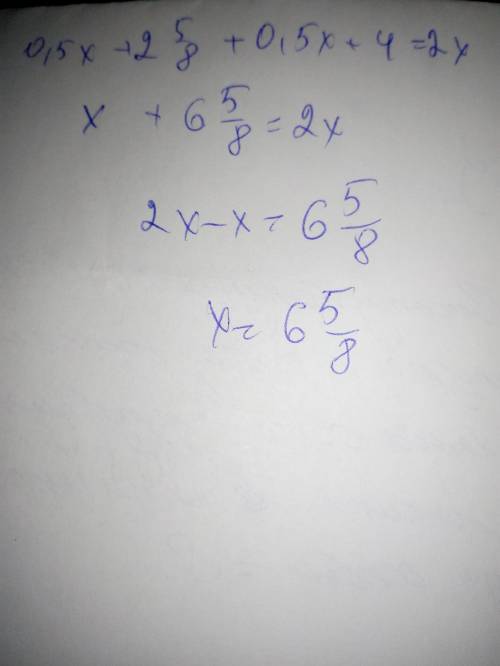 0,5x + 2 5/8 + 0,5x + 4 = 2x
x + 6 5/8 = 2x
2x - x = 6 5/8
x = 6 5/8